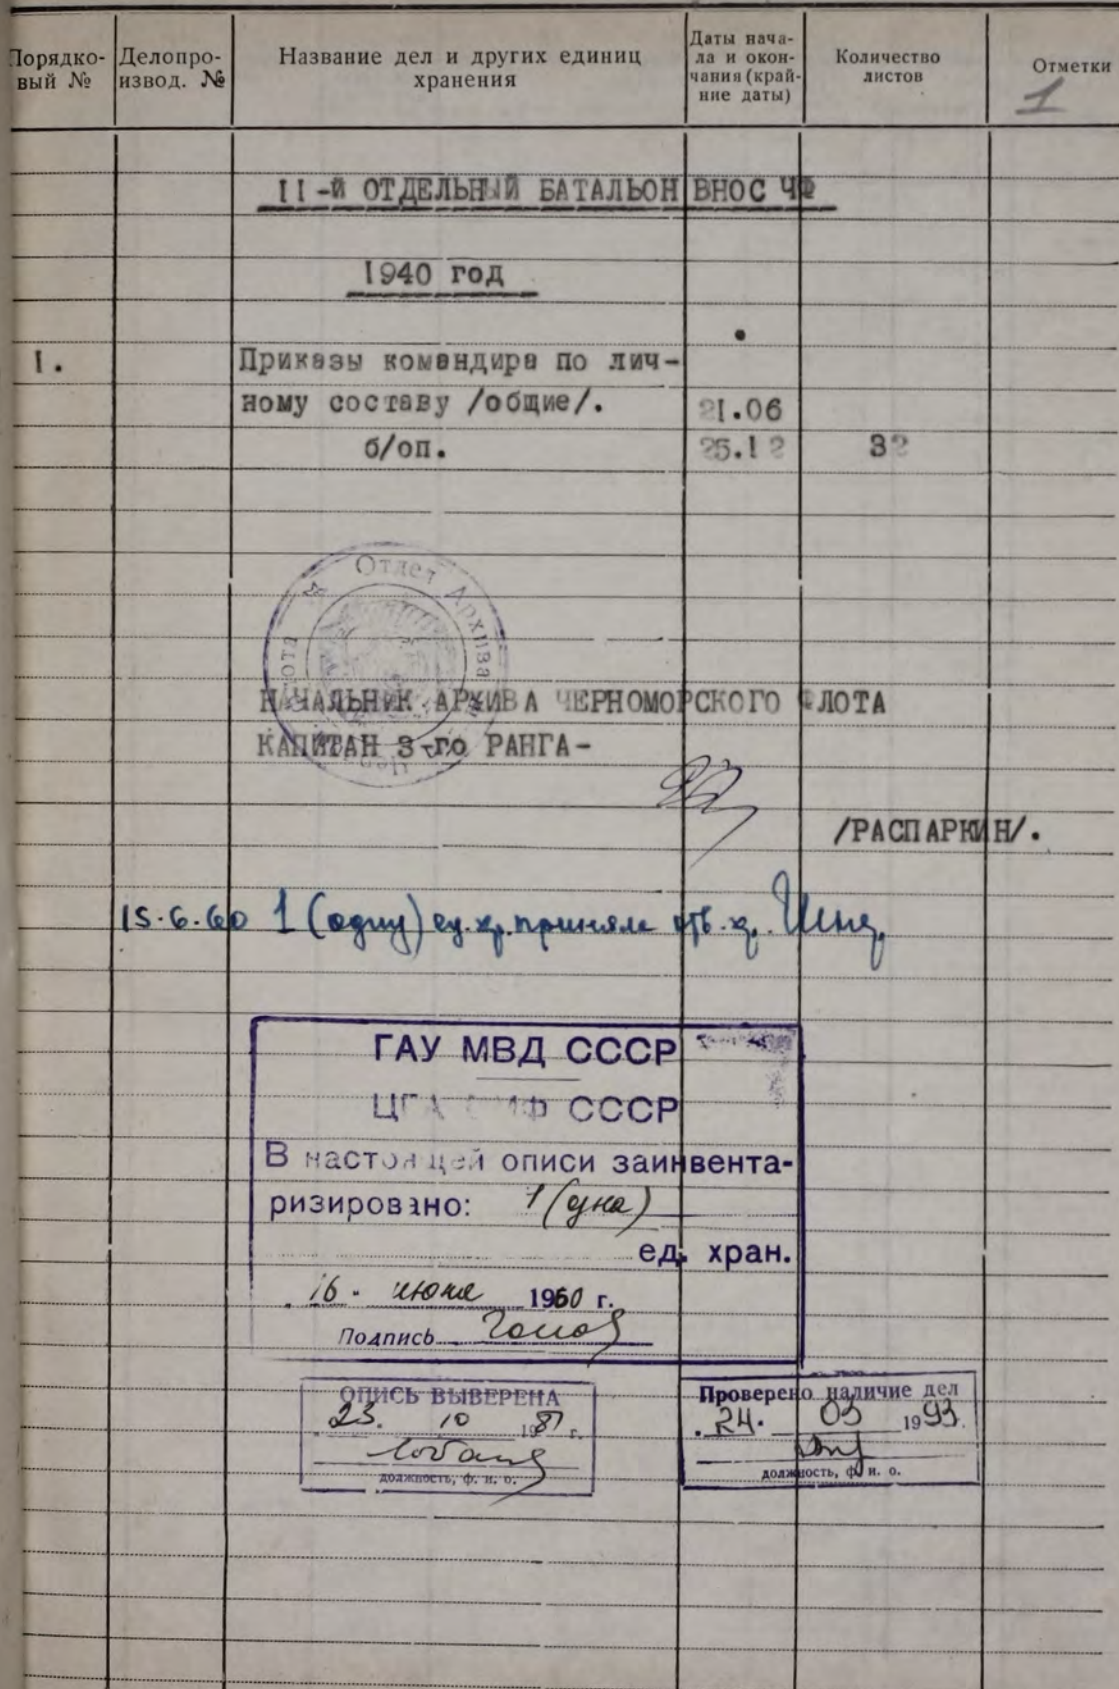 Порядко-
вый №
Делопро-
извод. №
Название дел и других единиц
хранения
Даты нача-
ла и окон-
чания (край-
ние даты)
Количество
листов
Отметки
1
11-й ОТДЕЛЬНЫЙ БАТАЛЬОН ВНОС ЧФ
1940 год
1. Приказы командира по лич-
ному составу /общие/. 21.06
б/оп. 25.12 32
Отдел Архива
НАЧАЛЬНИК АРХИВА ЧЕРНОМОРСКОГО ФЛОТА
КАПИТАН 3-го РАНГА-
/РАСПАРКИН/.
15.6.60 1 (одну) ед. хр. приняла отв. хр.
ГАУ МВД СССР
ЦГА СССР
В настоящей описи заинвента-
ризировано: 1 (одна)
ед. хран.
16. июня 1960 г.
Подпись
ОПИСЬ ВЫВЕРЕНА
23. 10 1987 г.
должность, ф. и. о.
Проверено наличие дел
24. 03 1993.
должность, ф. и. о.